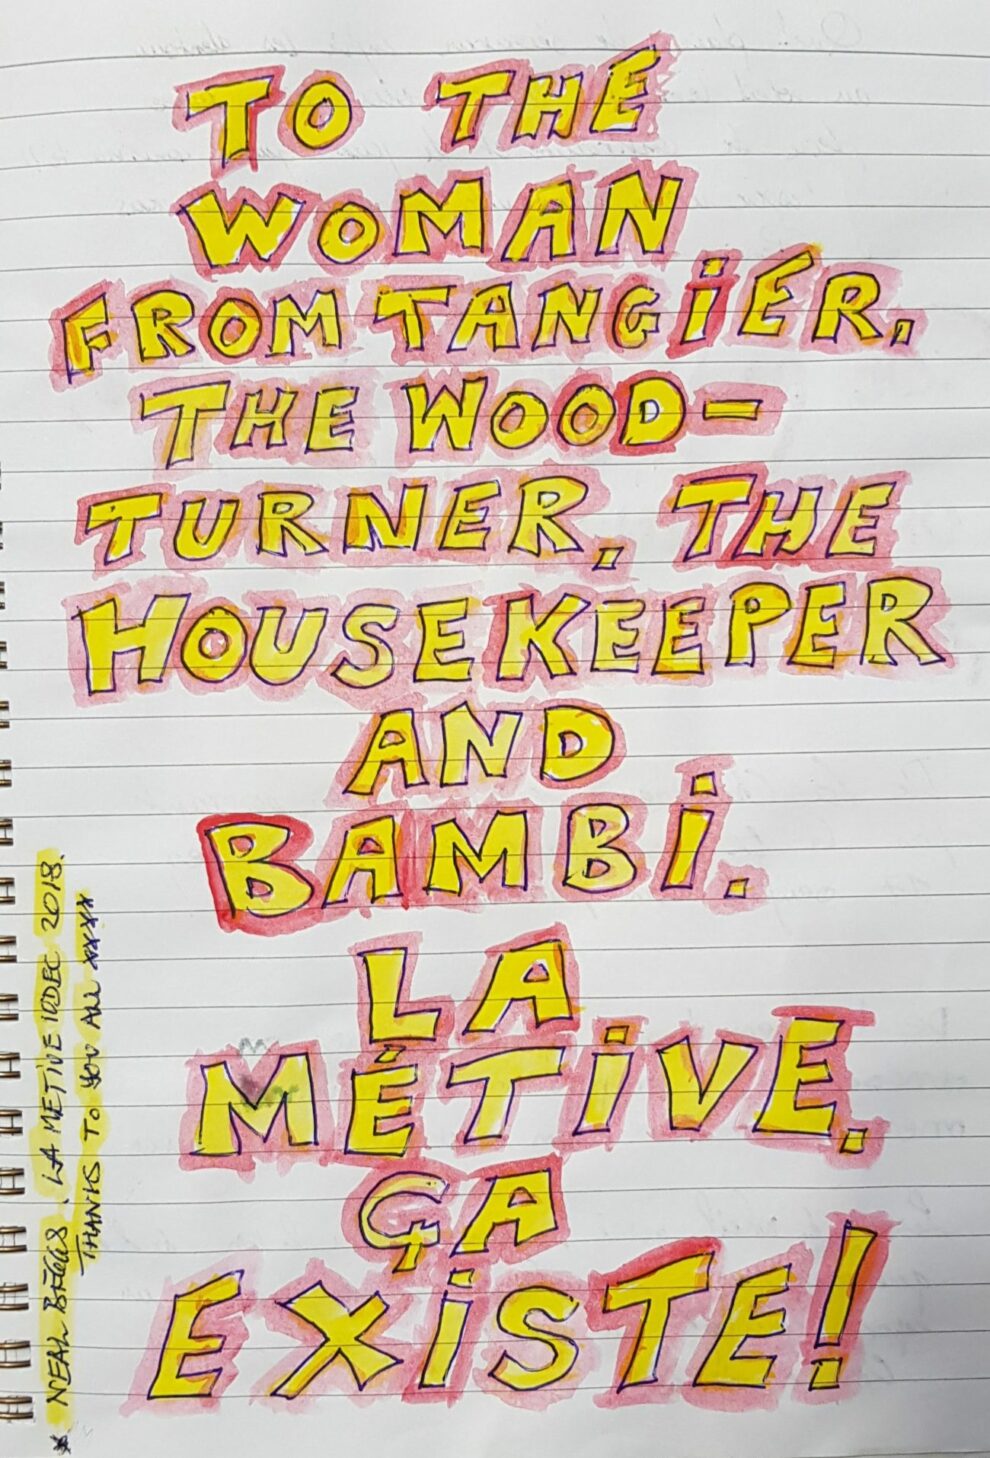 TO THE
WOMAN
FROM TANGiER,
THE WOOD-
TURNER, THE
HOUSEKEEPER
AND
BAMBi.
LA
MÉTiVE.
ÇA
EXiSTE!
NEAL BEGGS. LA METIVE 10DEC 2018.
THANKS TO YOU ALL xxxx